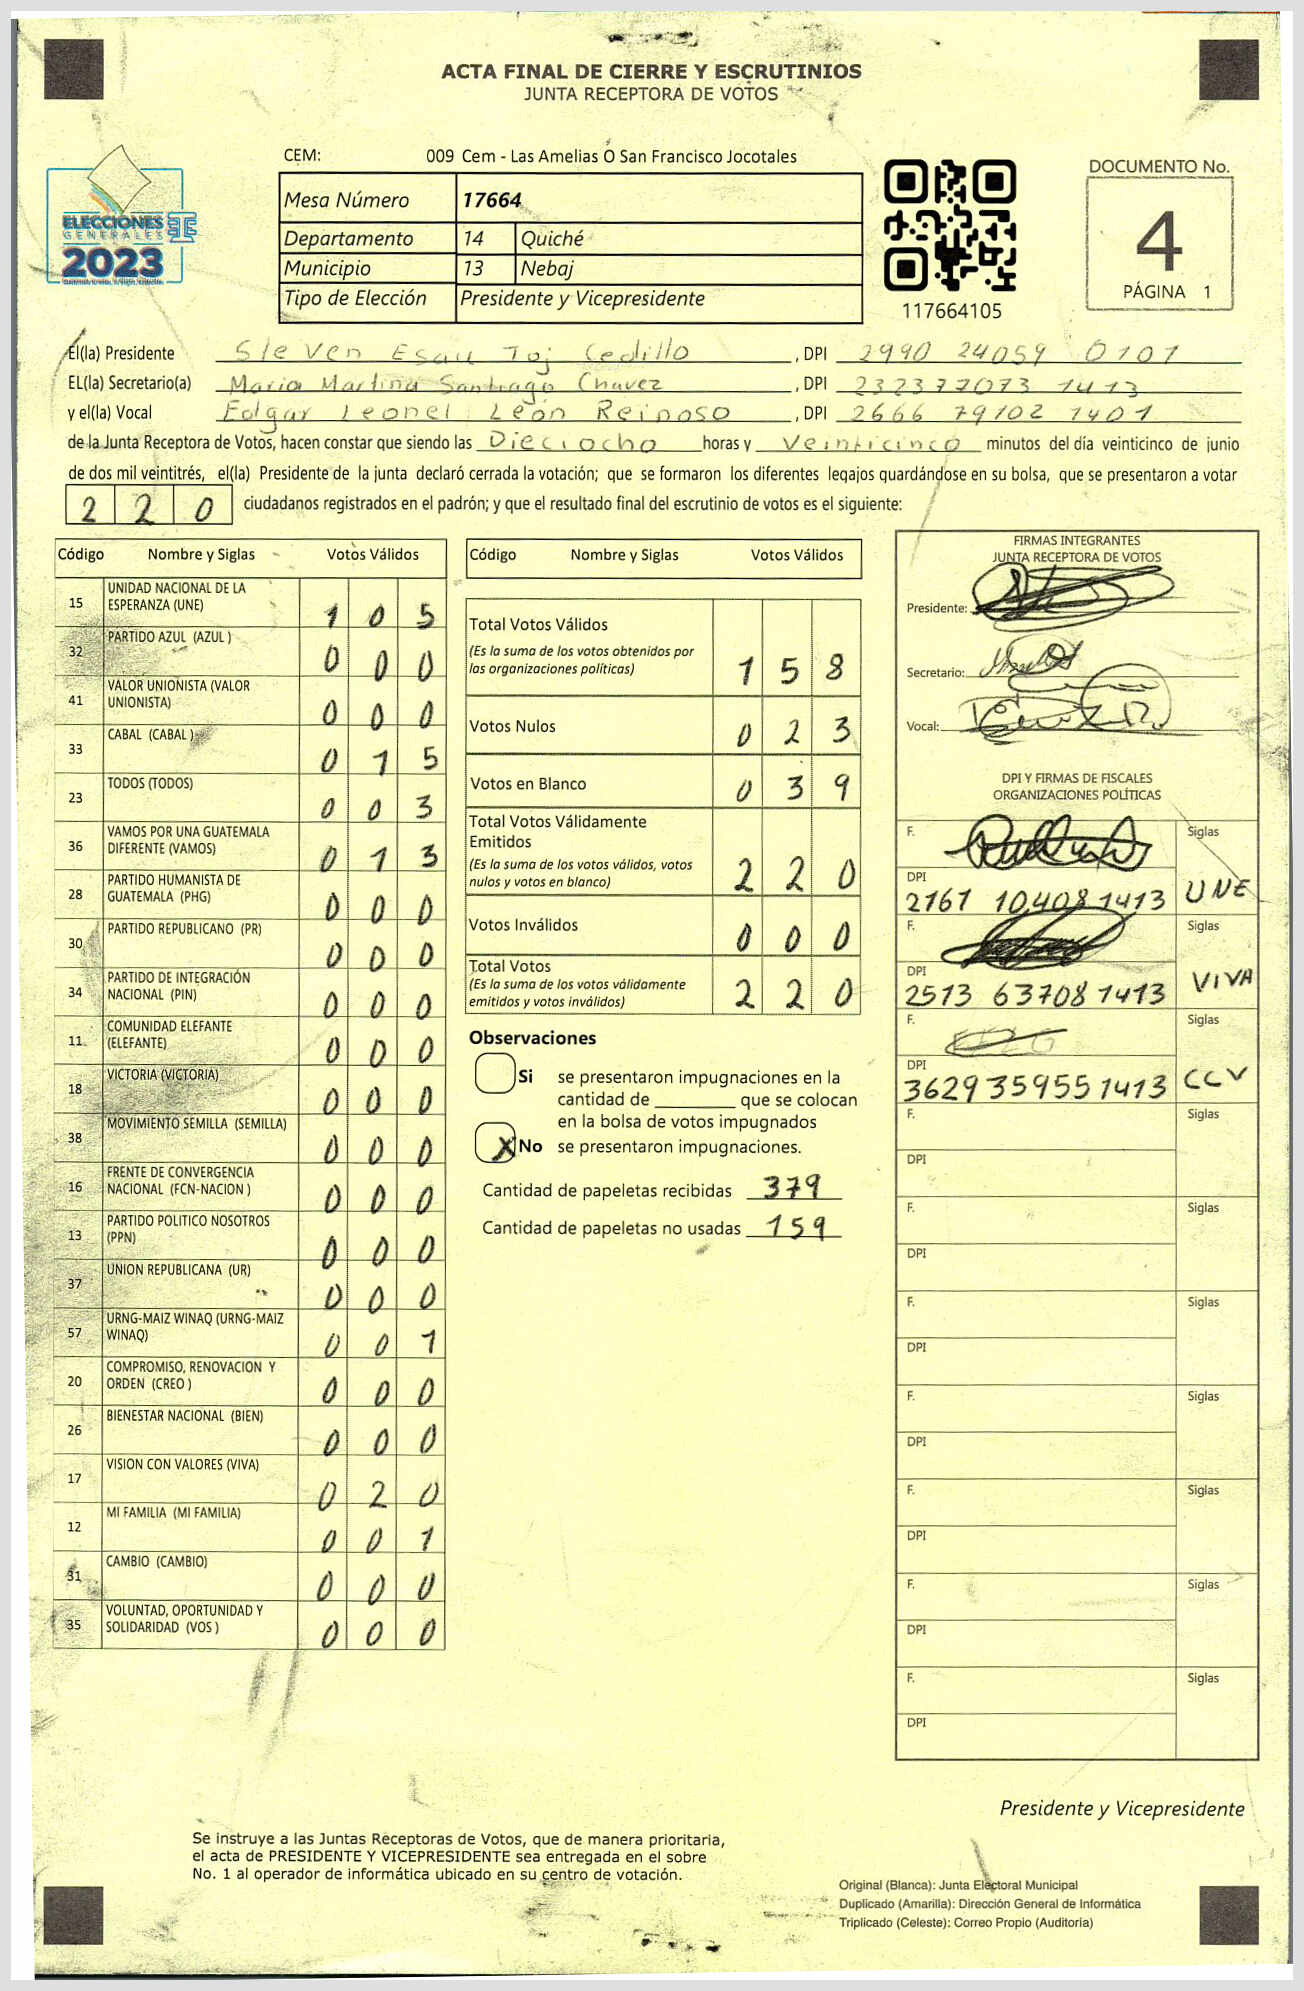 ACTA FINAL DE CIERRE Y ESCRUTINIOS
JUNTA RECEPTORA DE VOTOS
CEM: 009 Cem - Las Amelias O San Francisco Jocotales
ELECCIONES
GENERALES
2023
Mesa Número 17664
Departamento 14 Quiché
Municipio 13 Nebaj
Tipo de Elección Presidente y Vicepresidente
117664105
DOCUMENTO No.
4
PÁGINA 1
El(la) Presidente Steven Esau Toj Cedillo, DPI 2990 24059 0101
EL(la) Secretario(a) Maria Martina Santiago Chavez, DPI 232377073 1413
y el(la) Vocal Edgar Leonel León Reinoso, DPI 2666 79102 1401
de la Junta Receptora de Votos, hacen constar que siendo las Dieciocho horas y Veinticinco minutos del día veinticinco de junio
de dos mil veintitrés, el(la) Presidente de la junta declaró cerrada la votación; que se formaron los diferentes legajos quardándose en su bolsa, que se presentaron a votar
220 ciudadanos registrados en el padrón; y que el resultado final del escrutinio de votos es el siguiente:
Código Nombre y Siglas Votos Válidos
15 UNIDAD NACIONAL DE LA
ESPERANZA (UNE) 1 0 5
32 PARTIDO AZUL (AZUL ) 0 0 0
41 VALOR UNIONISTA (VALOR
UNIONISTA) 0 0 0
33 CABAL (CABAL ) 0 1 5
23 TODOS (TODOS) 0 0 3
36 VAMOS POR UNA GUATEMALA
DIFERENTE (VAMOS) 0 1 3
28 PARTIDO HUMANISTA DE
GUATEMALA (PHG) 0 0 0
30 PARTIDO REPUBLICANO (PR) 0 0 0
34 PARTIDO DE INTEGRACIÓN
NACIONAL (PIN) 0 0 0
11 COMUNIDAD ELEFANTE
(ELEFANTE) 0 0 0
18 VICTORIA (VICTORIA) 0 0 0
38 MOVIMIENTO SEMILLA (SEMILLA) 0 0 0
16 FRENTE DE CONVERGENCIA
NACIONAL (FCN-NACION ) 0 0 0
13 PARTIDO POLITICO NOSOTROS
(PPN) 0 0 0
37 UNION REPUBLICANA (UR) 0 0 0
57 URNG-MAIZ WINAQ (URNG-MAIZ
WINAQ) 0 0 1
20 COMPROMISO, RENOVACION Y
ORDEN (CREO ) 0 0 0
26 BIENESTAR NACIONAL (BIEN) 0 0 0
17 VISION CON VALORES (VIVA) 0 2 0
12 MI FAMILIA (MI FAMILIA) 0 0 1
31 CAMBIO (CAMBIO) 0 0 0
35 VOLUNTAD, OPORTUNIDAD Y
SOLIDARIDAD (VOS ) 0 0 0
Código Nombre y Siglas Votos Válidos
Total Votos Válidos
(Es la suma de los votos obtenidos por
las organizaciones políticas) 1 5 8
Votos Nulos 0 2 3
Votos en Blanco 0 3 9
Total Votos Válidamente
Emitidos
(Es la suma de los votos válidos, votos
nulos y votos en blanco) 2 2 0
Votos Inválidos 0 0 0
Total Votos
(Es la suma de los votos válidamente
emitidos y votos inválidos) 2 2 0
Observaciones
Si se presentaron impugnaciones en la
cantidad de ________ que se colocan
en la bolsa de votos impugnados
X No se presentaron impugnaciones.
Cantidad de papeletas recibidas 379
Cantidad de papeletas no usadas 159
FIRMAS INTEGRANTES
JUNTA RECEPTORA DE VOTOS
Presidente:
Secretario:
Vocal:
DPI Y FIRMAS DE FISCALES
ORGANIZACIONES POLÍTICAS
F. Siglas
DPI
2161 10408 1413 UNE
F. Siglas
DPI
2513 63708 1413 VIVA
F. Siglas
DPI
3629359551413 CCV
F. Siglas
DPI
F. Siglas
DPI
F. Siglas
DPI
F. Siglas
DPI
F. Siglas
DPI
F. Siglas
DPI
F. Siglas
DPI
Presidente y Vicepresidente
Se instruye a las Juntas Receptoras de Votos, que de manera prioritaria,
el acta de PRESIDENTE Y VICEPRESIDENTE sea entregada en el sobre
No. 1 al operador de informática ubicado en su centro de votación.
Original (Blanca): Junta Electoral Municipal
Duplicado (Amarilla): Dirección General de Informática
Triplicado (Celeste): Correo Propio (Auditoría)